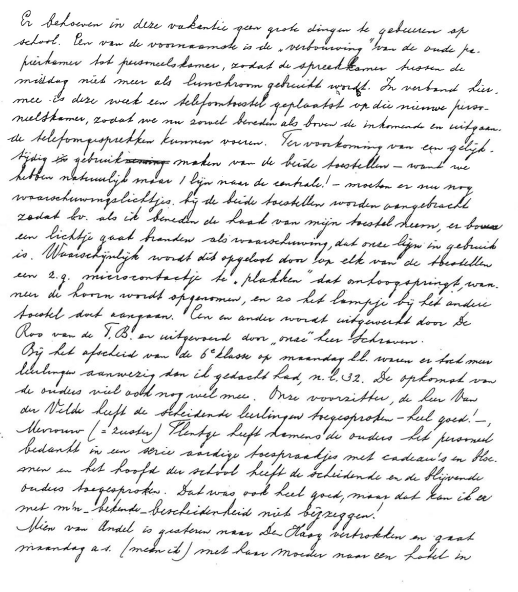 Er behoeven in deze vakantie geen grote dingen te gebeuren op
school. Een van de voornaamste is de "verbouwing" van de oude pa-
pierkamer tot personeelskamer, zodat de spreekkamer tussen de
middag niet meer als lunchroom gebruikt wordt. In verband hier-
mee is deze week een telefoontoestel geplaatst op die nieuwe perso-
neelskamer, zodat we nu zowel beneden als boven de inkomende en uitgaan-
de telefoongesprekken kunnen voeren. Ter voorkoming van een gelijk-
tijdig gebruik maken van de beide toestellen – want we
hebben natuurlijk maar 1 lijn naar de centrale! – moeten er nu nog
waarschuwingslichtjes bij de beide toestellen worden aangebracht
zodat bv. als ik beneden de haak van mijn toestel neem, er boven
een lichtje gaat branden als waarschuwing, dat onze lijn in gebruik
is. Waarschijnlijk wordt dit opgelost door op elk van de toestellen
een z.g. microcontactje te "plakken" dat omhoogspringt, wan-
neer de hoorn wordt opgenomen, en zo het lampje bij het andere
toestel doet aangaan. Een en ander wordt uitgewerkt door De
Roo van de T.B. en uitgevoerd door "onze" heer Schraven.
Bij het afscheid van de 6e klasse op maandag l.l. waren er toch meer
leerlingen aanwezig dan ik gedacht had, n.l. 32. De opkomst van
de ouders viel ook nog wel mee. Onze voorzitter, de heer Van
der Velde heeft de scheidende leerlingen toegesproken – heel goed! –,
Mevrouw (= zuster) Flentge heeft namens de ouders het personeel
bedankt in een serie aardige toespraakjes met cadeau's en bloe-
men en het hoofd der school heeft de scheidende en de blijvende
ouders toegesproken. Dat was ook heel goed, maar dat kan ik er
met m'n – bekende – bescheidenheid niet bijzeggen!
Mien van Andel is gisteren naar Den Haag vertrokken en gaat
maandag a.s. (meen ik) met haar moeder naar een hotel in